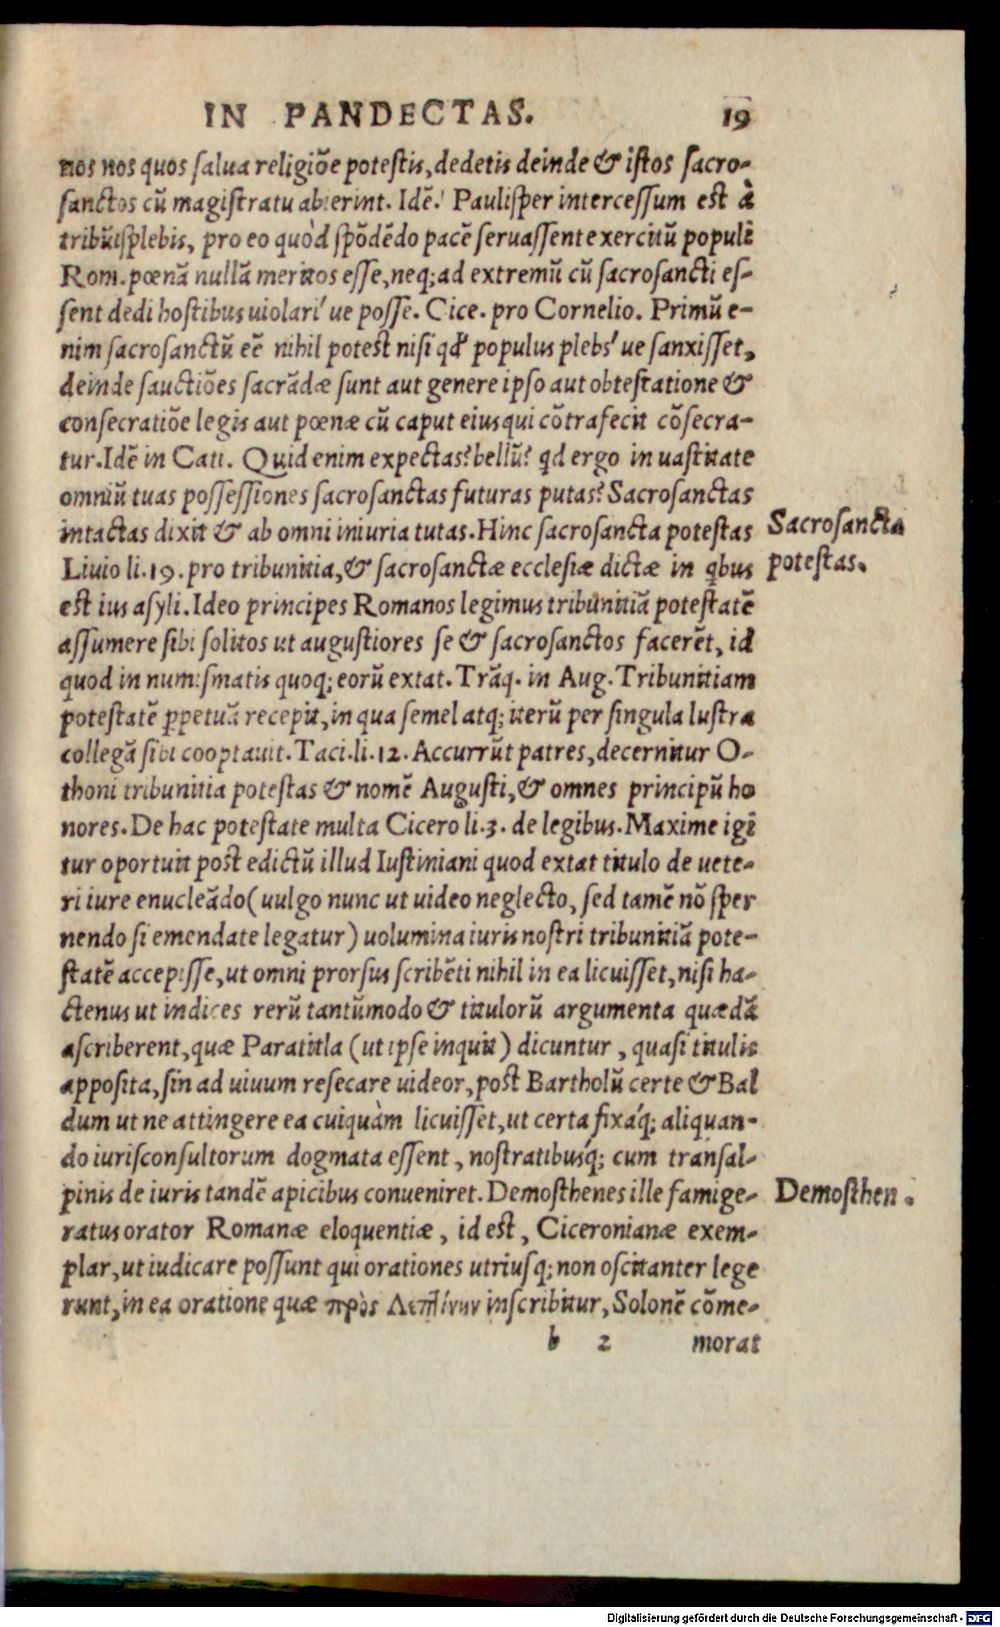 IN PANDECTAS. 19
nos nos quos salua religiõe potestis, dedetis deinde & istos sacro-
sanctos cũ magistratu abierint. Idẽ. Paulisper intercessum est à
tribũisplebis, pro eo quòd spõdẽdo pacẽ seruassent exercitũ populi
Rom. pœnã nullã meritos esse, neq; ad extremũ cũ sacrosancti es-
sent dedi hostibus uiolari'ue posse. Cice. pro Cornelio. Primũ e-
nim sacrosanctũ eẽ nihil potest nisi qđ populus plebs'ue sanxisset,
deinde sauctiões sacrãdæ sunt aut genere ipso aut obtestatione &
consecratiõe legis aut pœnæ cũ caput eius qui cõtrafecit cõsecra-
tur. Idẽ in Cati. Quid enim expectas? bellũ? qd ergo in uastitate
omniũ tuas possessiones sacrosanctas futuras putas? Sacrosanctas
intactas dixit & ab omni iniuria tutas. Hinc sacrosancta potestas
Sacrosancta
Liuio li. 19. pro tribunitia, & sacrosanctæ ecclesiæ dictæ in qbus
potestas.
est ius asyli. Ideo principes Romanos legimus tribunitiã potestatẽ
assumere sibi solitos ut augustiores se & sacrosanctos facerẽt, id
quod in numismatis quoq; eorũ extat. Trãq. in Aug. Tribunitiam
potestatẽ ꝑpetuã recepit, in qua semel atq; iterũ per singula lustra
collegã sibi cooptauit. Taci. li. 12. Accurrũt patres, decernitur O-
thoni tribunitia potestas & nomẽ Augusti, & omnes principũ ho
nores. De hac potestate multa Cicero li. 3. de legibus. Maxime igi
tur oportuit post edictũ illud Iustiniani quod extat titulo de uete-
ri iure enucleãdo (uulgo nunc ut uideo neglecto, sed tamẽ nõ sper
nendo si emendate legatur) uolumina iuris nostri tribunitiã pote-
statẽ accepisse, ut omni prorsus scribẽti nihil in ea licuisset, nisi ha-
ctenus ut indices rerũ tantũmodo & titulorũ argumenta quædã
ascriberent, quæ Paratitla (ut ipse inquit) dicuntur, quasi titulis
apposita, sin ad uiuum resecare uideor, post Bartholũ certe & Bal
dum ut ne attingere ea cuiquàm licuisset, ut certa fixáq; aliquan-
do iurisconsultorum dogmata essent, nostratibúsq; cum transal-
pinis de iuris tandẽ apicibus conueniret. Demosthenes ille famige-
Demosthen.
ratus orator Romanæ eloquentiæ, id est, Ciceronianæ exem-
plar, ut iudicare possunt qui orationes utriusq; non oscitanter lege
runt, in ea oratione quæ πρὸς Λεπτίνην inscribitur, Solonẽ cõme-
b 2 morat
Digitalisierung gefördert durch die Deutsche Forschungsgemeinschaft - DFG